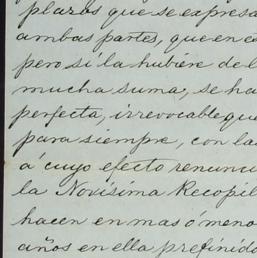 plazos que se expresa
ambas partes, que en es
pero si la hubiere de l
mucha suma, se ha
perfecta, irrevocable que
para siempre, con la
á cuyo efecto renunci
la Novísima Recopil
hacen en mas ó meno
años en ella prefinido